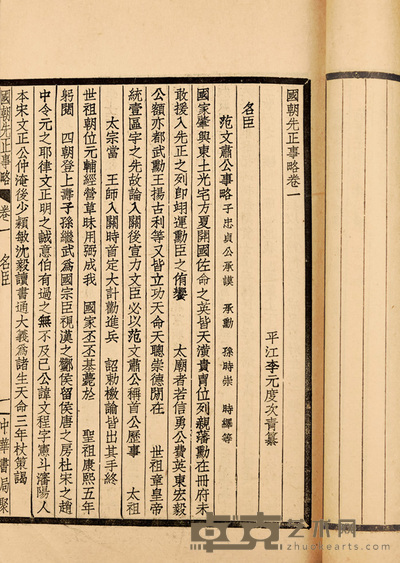 國朝先正事略卷一
平江李元度次青纂
名臣
范文肅公事略 子忠貞公承謨 承勳 孫時崇 時繹等
國家肇興東土光宅方夏開國佐命之英皆天潢貴胄位列親藩勳在冊府未
敢援入先正之列即翊運勳臣之侑饗 太廟者若信勇公費英東宏毅
公額亦都武勳王揚古利等又皆立功天命天聰崇德閒在 世祖章皇帝
統壹區宇之先故論入關後宣力文臣必以范文肅公稱首公歷事 太祖
太宗當 王師入關時首定大計勸進兵 詔勅檄諭皆出其手終
世祖朝位元輔經營草昧用弼成我 國家丕丕基薨於 聖祖康熙五年
躬閱 四朝登上壽子孫繼武為國宗臣視漢之酇侯留侯唐之房杜宋之趙
中令元之耶律文正明之誠意伯有過之無不及已公諱文程字憲斗瀋陽人
本宋文正公仲淹後少穎敏沈毅讀書通大義為諸生天命三年杖策謁
國朝先正事略 卷一 名臣 一 中華書局聚
卓克艺术网
zhuokearts.com